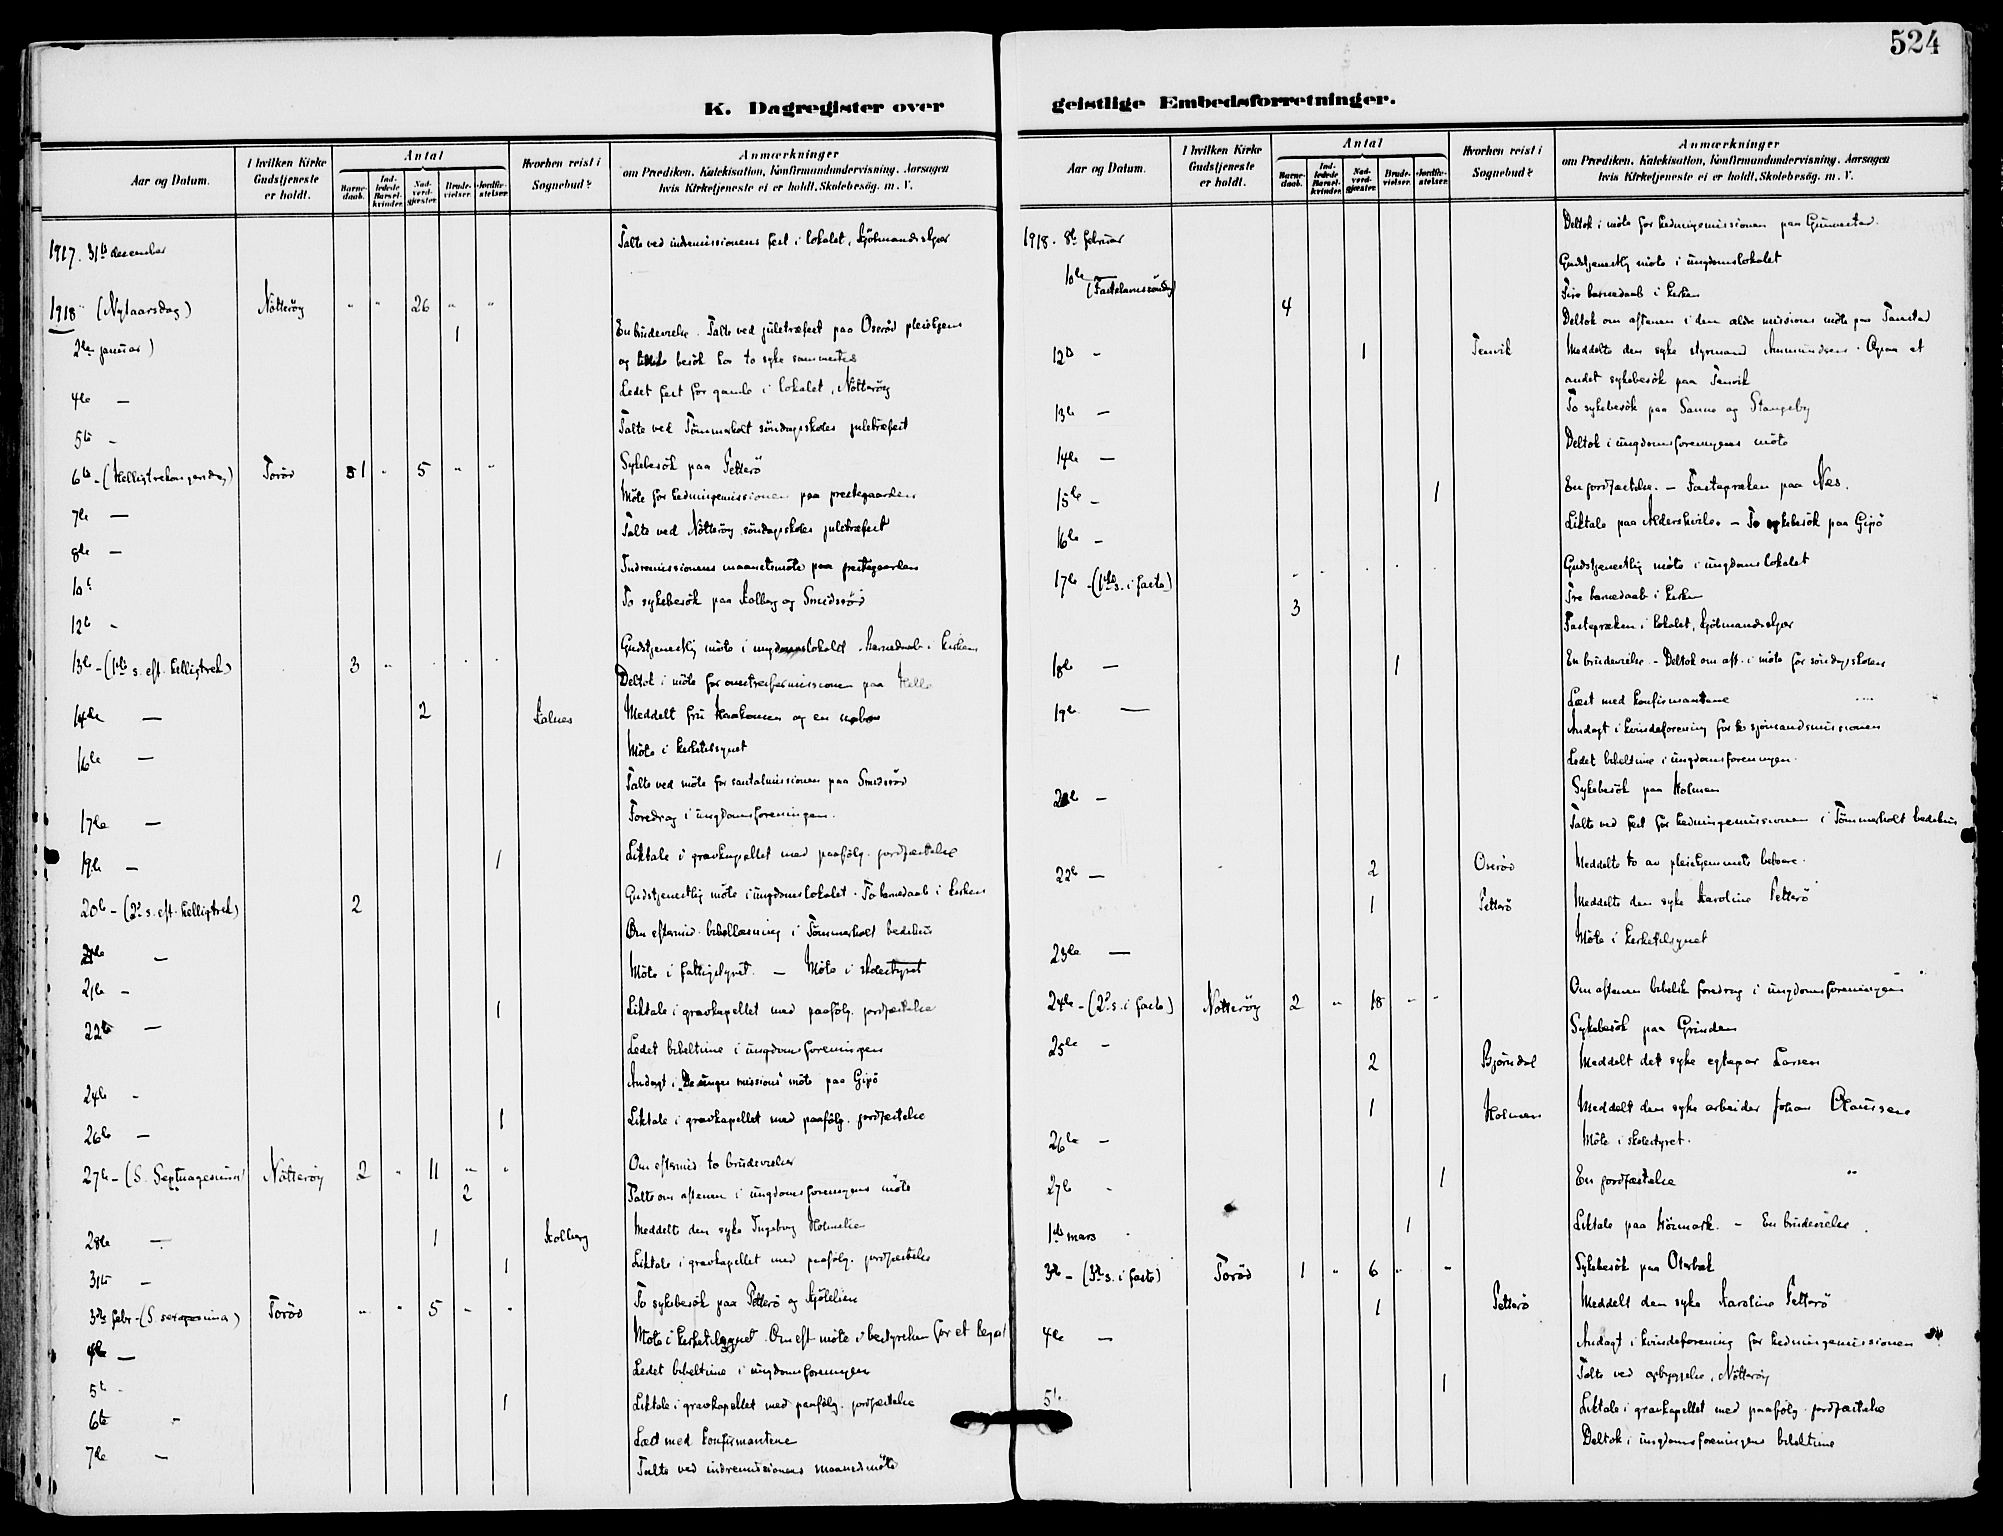 524
K. Dagregister over
geistlige Embedsforretninger.
Aar og Datum.
I hvilken Kirke Gudstjeneste er holdt.
Antal
Barnedaab. Indledede Barselkvinder. Nadverdgjæster. Brudevielser. Jordfæstelser.
Hvorhen reist i Sognebud?
Anmærkninger
om Prædiken, Katekisation, Konfirmandundervisning, Aarsagen
hvis Kirketjeneste ei er holdt, Skolebesøg. m. V.
1917. 31te december Talte ved indremissionens fest i lokalet, Kjölmandskjær
1918 (Nytaarsdag) Nötteröy " " 26 " "
2den januar) 1 En brudevielse. Talte ved juletræfest paa Oseröd pleiehjem
og besök hos to syke sammesteds
4de — Ledet fest for gamle i lokalet, Nötteröy
5te - Talte ved Tömmerholt söndagsskoles juletræfest
6te - (Helligtrekongersdag) Toröd 1 " 5 " " Sykebesök paa Petterö
7de — Möte for hedningemissionen paa prestegaarden
8de — Talte ved Nötteröy söndagsskoles juletræfest
10de Indremissionens maanetsmöte paa prestegaarden
12te - To sykebesök paa Kolberg og Smidsröd
13de - (1ste s. eft. helligtrek.) 3 Gudstjenestlig möte i ungdomslokalet. barnedaab i kirken
Deltok i möte for missionen paa Hella
14de — 2 Kalnes Meddelt fru Haakonsen og en nabo
16de — Möte i kirketilsynet
Talte ved möte for santalmissionen paa Smidsröd
17de — Foredrag i ungdomsforeningen.
19de — 1 Liktale i gravkapellet med paafölg. jordfæstelse
20de - (2den s. eft. helligtrek.) 2 Gudstjenestlig möte i ungdomslokalet. To barnedaab i kirken
Om eftermid. bibellæsning i Tömmerholt bedehus
— Möte i fattigstyret. — Möte i skolestyret
21de -
22de — 1 Liktale i gravkapellet med paafölg. jordfæstelse
Ledet bibeltime i ungdomsforeningen
24de - Andagt i "De unges missions" möte paa Gipö
26de — 1 Liktale i gravkapellet med paafölg. jordfæstelse
27de - (S. Septuagesima) Nötteröy 2 " 11 " " Om eftermid. to brudevielser
2 Talte om aftenen i ungdomsforeningens möte
28de — 1 Kolberg Meddelt den syke Ingeborg
31te — 1 Liktale i gravkapellet med paafölg. jordfæstelse
3die febr - (S. sexagesima) Toröd " " 5 " " To sykebesök paa Petterö og Kjölelien
4de — Möte i kirketilsynet. Om eft möte i bestyrelsen for et legat
5te - Ledet bibeltime i ungdomsforeningen
6te " 1 Liktale i gravkapellet med paafölg. jordfæstelse
7de — Læst med konfirmantene
Talte ved indremissionens maanedsmöte
Aar og Datum.
I hvilken Kirke Gudstjeneste er holdt.
Antal
Barnedaab. Indledede Barselkvinder. Nadverdgjæster. Brudevielser. Jordfæstelser.
Hvorhen reist i Sognebud?
Anmærkninger
om Prædiken, Katekisation, Konfirmandundervisning, Aarsagen
hvis Kirketjeneste ei er holdt, Skolebesøg. m. V.
1918. 8de februar Deltok i möte for hedningemissionen paa Gunnestad.
10de (Fastelavnssöndag) Gudstjenestlig möte i ungdomslokalet
4 Fire barnedaab i kirken
Deltok om aftenen i den ældre missions möte paa Tanstad
12te - 1 Tenvik Meddelte den syke styrmand Ammundsen. Ogsaa et
andet sykebesök paa Tenvik
13de — To sykebesök paa Sanne og Stangeby
14de — Deltok i ungdomsforeningens möte
15de - 1 En jordfæstelse. — Fastepræken paa Næs.
16de - Liktale paa Aldershvile. — To sykebesök paa Gipö
17de - (1ste s. i faste) Gudstjenestlig möte i ungdomslokalet
3 Tre barnedaab i kirken
Fastepræken i lokalet, Kjölmandskjær
18de — 1 En brudevielse. - Deltok om aft. i möte for söndagsskolen
19de — Læst med konfirmantene
Andagt i kvindeforening for sjömandsmissionen
Ledet bibeltime i ungdomsforeningen.
— Sykebesök paa Holmen
Talte ved fest for hedningemissionen i Tömmerholt bedehus
22de — 2 Oseröd Meddelte to av pleiehjemmets beboere.
1 Petterö Meddelte den syke Karoline Petterö
23de — Möte i kirketilsynet
24de - (2den s. i faste) Nötteröy 2 " 18 " " Om aftenen bibelsk foredrag i ungdomsforeningen
25de - Sykebesök paa Grinden
2 Bjørndal Meddelt det syke egtepar Larsen
1 Holmen Meddelt den syke arbeider Johan Olaussen
26de - Möte i skolestyret.
27de - 1 En jordfæstelse
1ste mars 1 Liktale paa. — En brudevielse.
3die - (3die s. i faste) Toröd 1 " 6 " " Sykebesök paa Oterbæk
1 Petterö Meddelt den syke Karoline Petterö
4de — Andagt i kvindeforening for hedningemissionen
Talte ved opbyggelse, Nötteröy
5te 1 Liktale i gravkapellet med paafölg. jordfæstelse
Deltok i ungdomsforeningens bibeltime